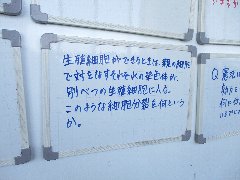 生殖細胞ができるときは、親の細胞
で対をなすそれぞれの染色体が、
別べつの生殖細胞に入る。
このような細胞分裂を何という
か。